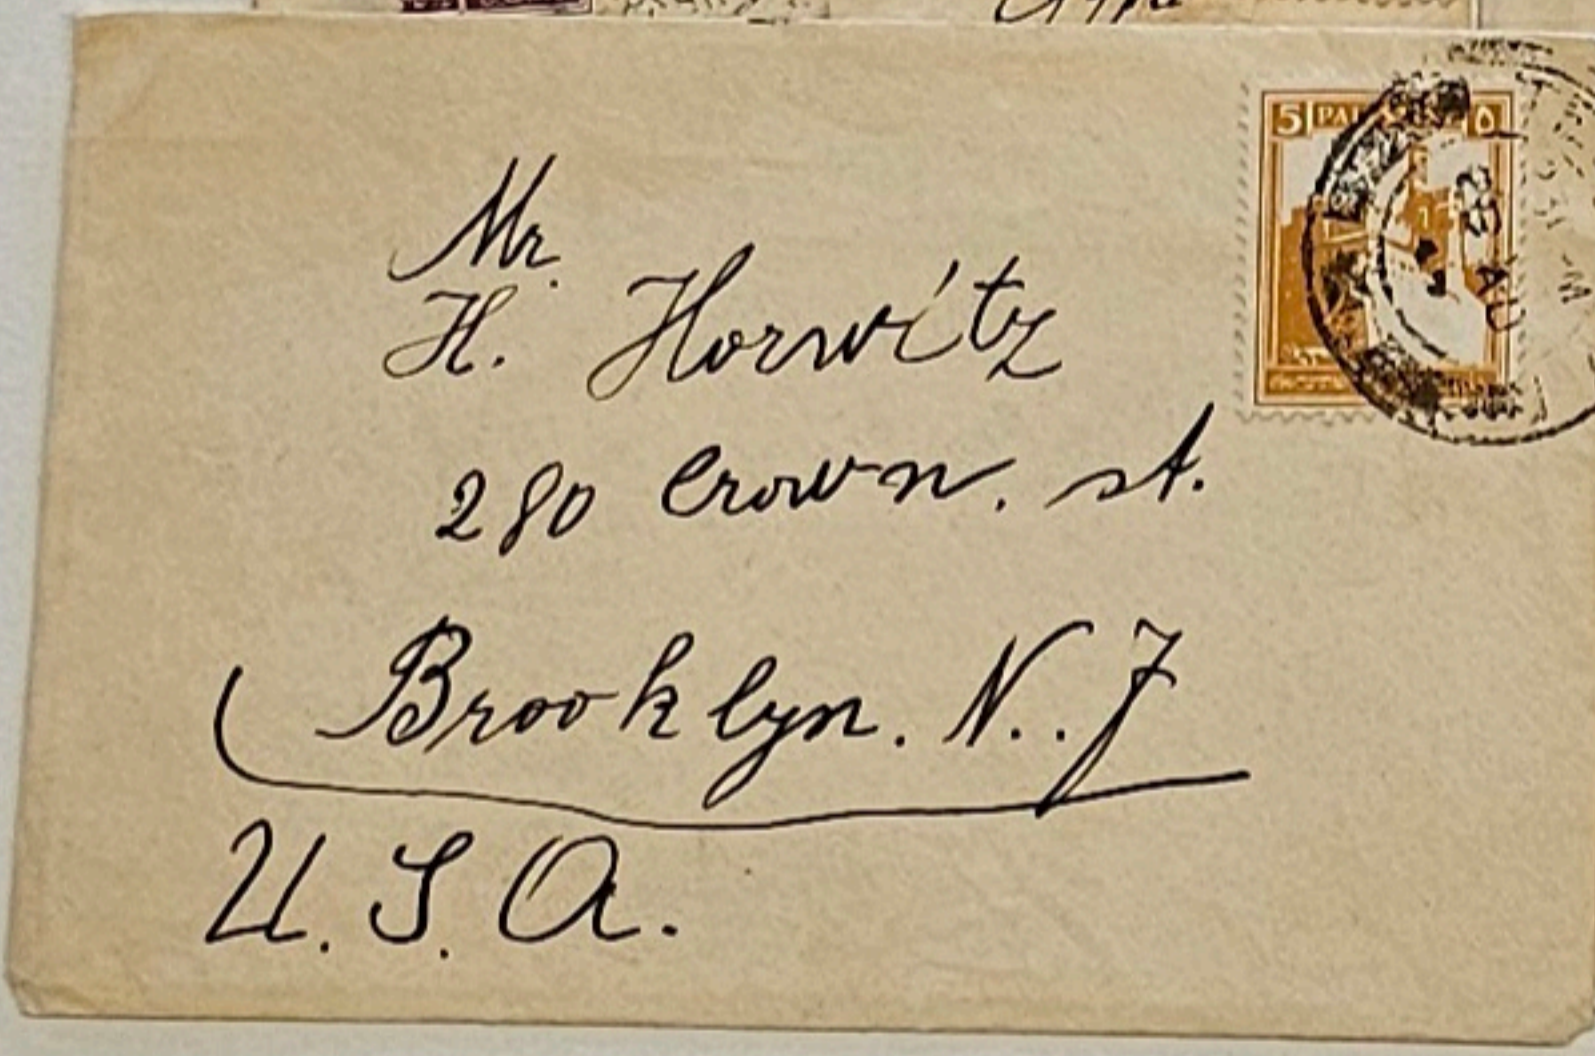 Mr.
H. Horwitz
280 Crown. st.
Brooklyn. N.. J
U. S. A.
5
٥